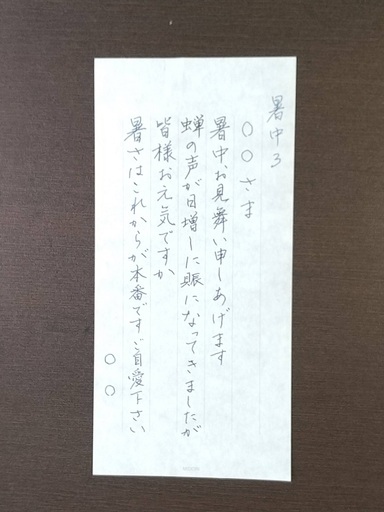 暑中3
〇〇さま
暑中お見舞い申しあげます
蝉の声が日増しに賑になってきましたが
皆様お元気ですか
暑さはこれからが本番ですご自愛下さい
〇〇